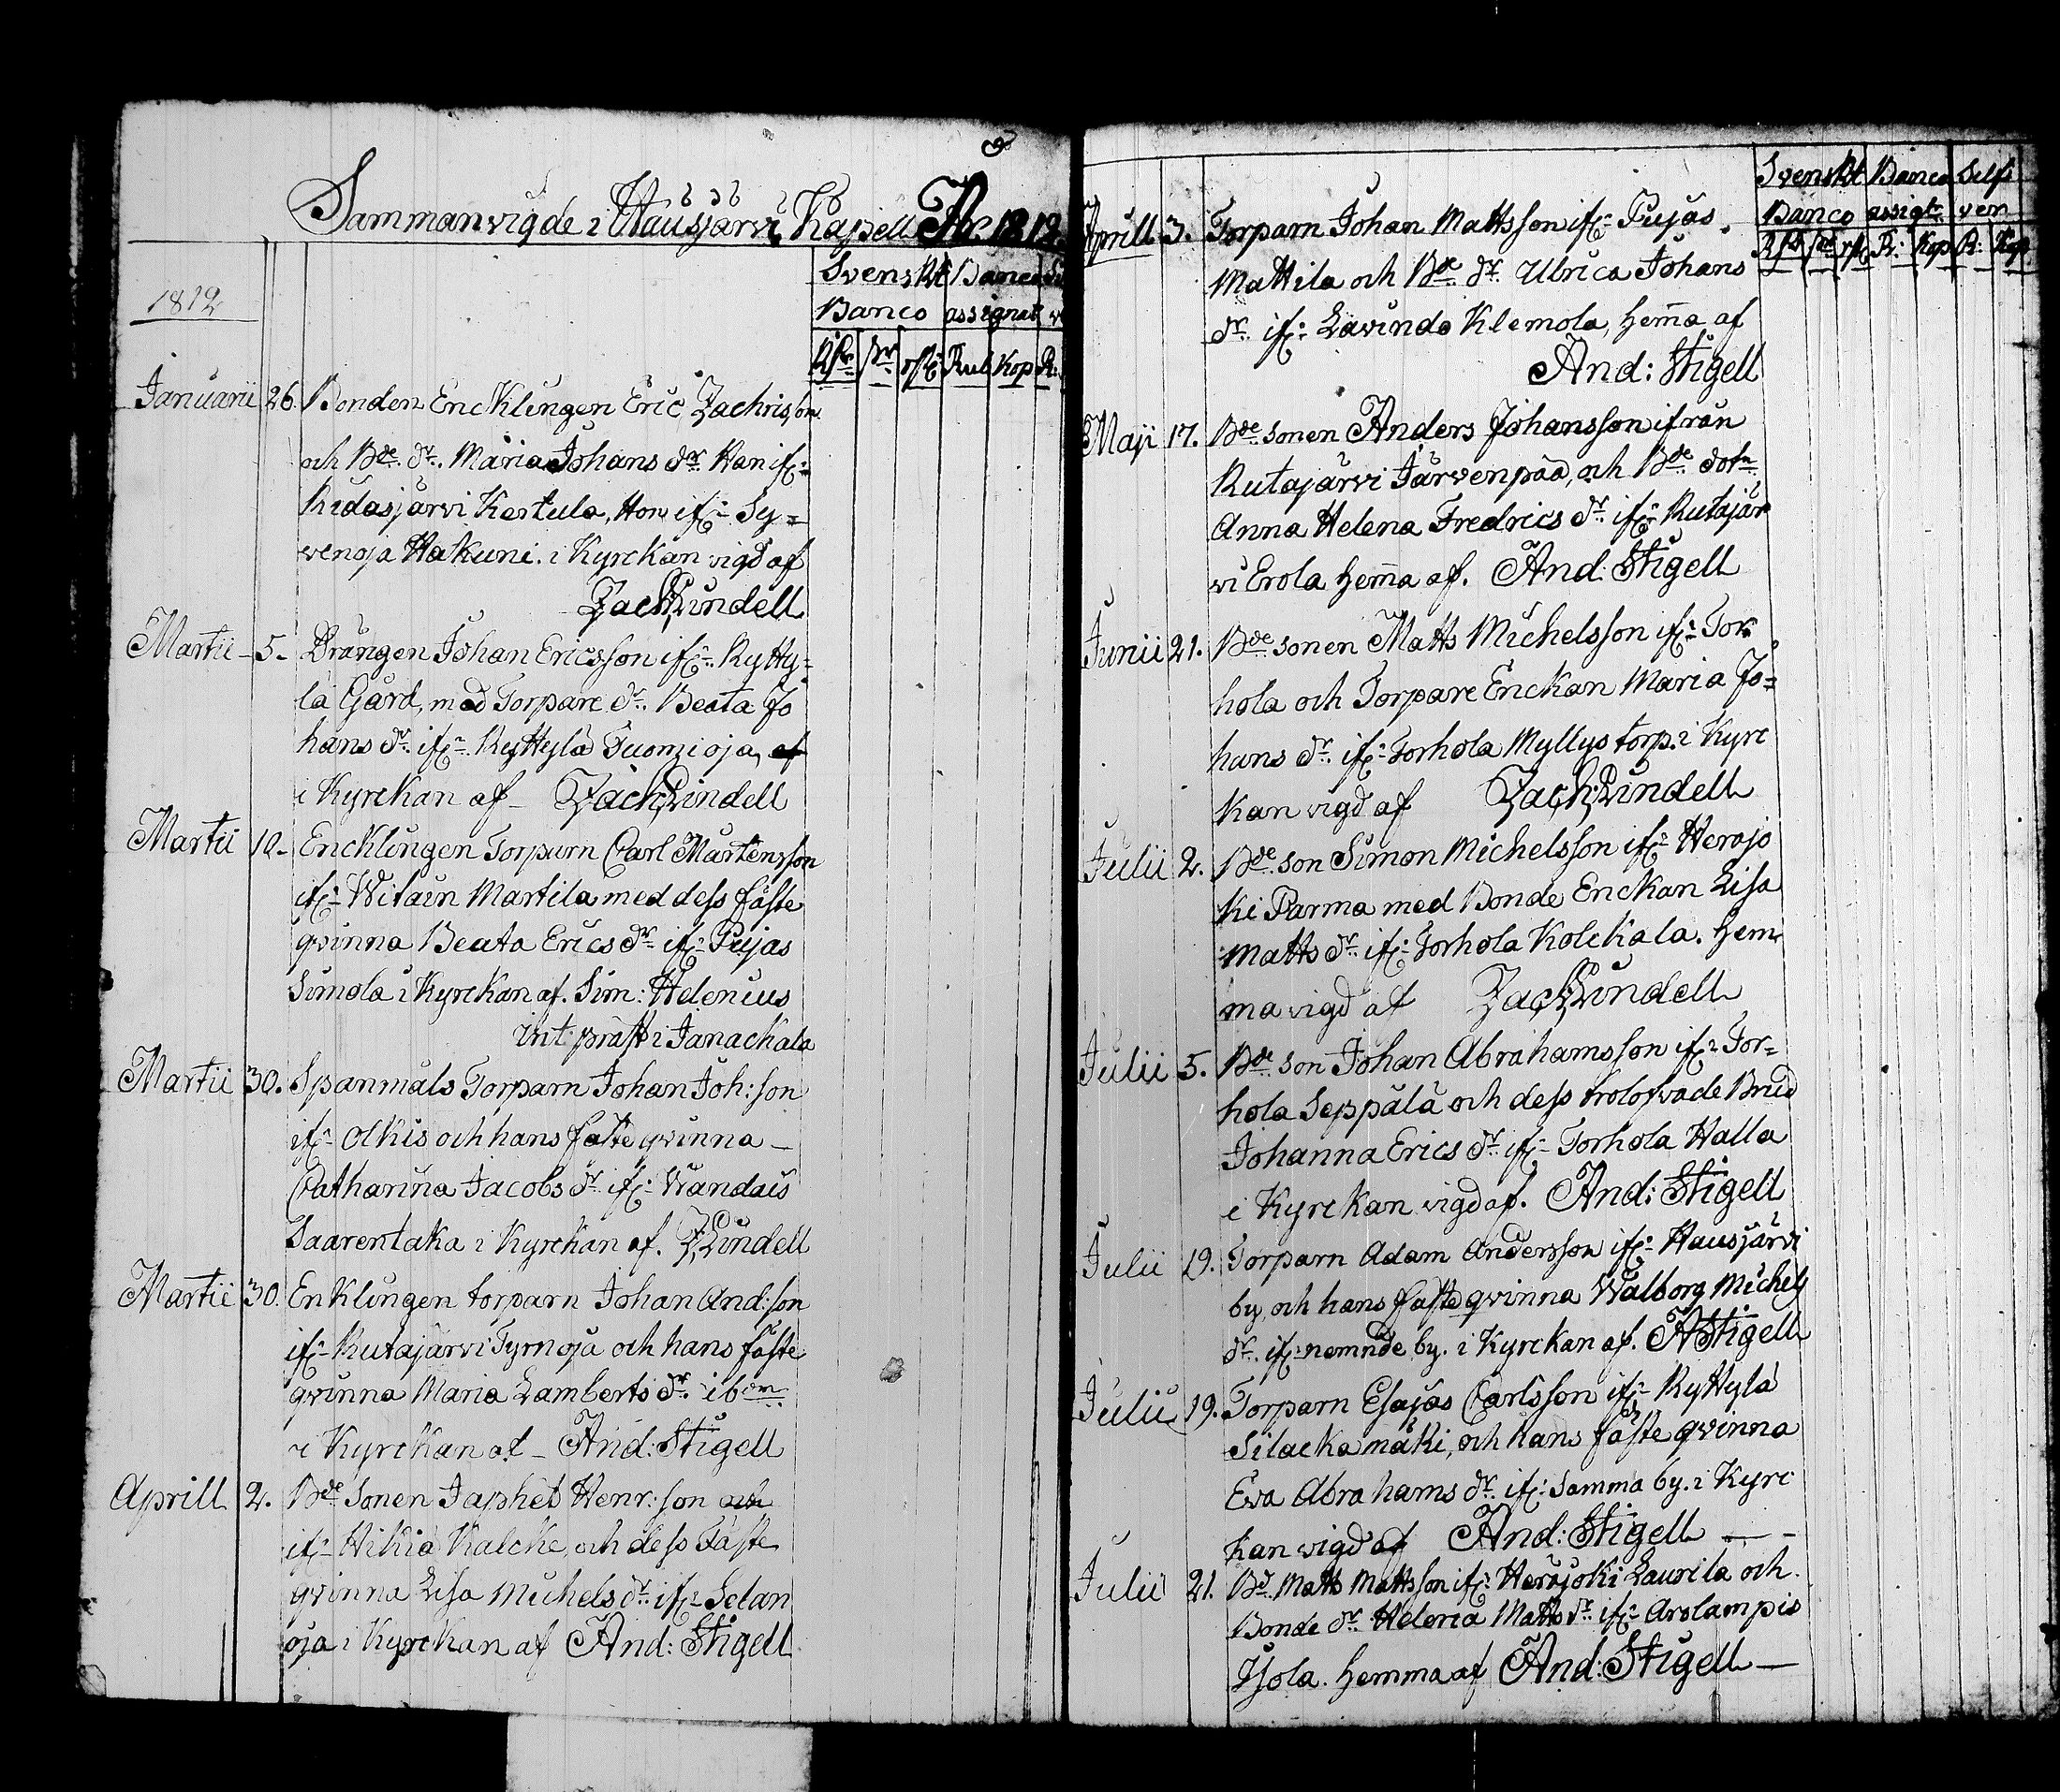 Sammanvigde i Hausjärvi Kapell År 1812.
Svenskt Banco
Banco assignat
1812
Rub Kop R:
Januarii 26. Bonden Encklingen Eric Zachrisson
och Bde dr. Maria Johans dr. Han ifr:
Hidasjärvi Kertula, Hon ifr: Sy=
venoja Hakuni. i Kyrckan vigd af
Zach Lindell
Martii - 5 - Drängen Johan Ericsson ifr: Rytty=
lä Gård, med Torpare dr. Beata Jo
hans dr. ifr: Ryttylä Tuomioja, af
i Kyrckan af - Zach Lindell
Martii 10 - Encklingen Torparn Carl Mårtensson
ifr: Witain Martila med dess fäste
qvinna Beata Erics dr. ifr: Pujas
Simola i Kyrckan af. Sim: Helenius
int präst i Janackala
Martii 30. Spanmåls Torparn Johan Joh:son
ifr: Olkis och hans fäste qvinna -
Catharina Jacobs dr. ifr: Wandais
Saarentaka i Kyrckan af. Z Lindell
Martii 30. Enklingen torparn Johan And:son
ifr: Rutajärvi Tyrnoja och hans fäste
qvinna Maria Lamberts dr. ibdm
i Kyrckan af - And: Stigell
Aprill 2. Bde sonen Japhet Henr:son och
ifr: Hikiä Kalcke, och dess Fäste
qvinna Lisa Michels dr. ifr: Selan
oja i Kyrckan af And: Stigell
Svenskt Banco Silf
Banco assigt. ver
R: Kop R: Kop
Aprill 3. Torparn Johan Mattsson ifr: Pujas
Mattila och Bde dr. Ulrica Johans
dr. ifr: Lavinda Klemola, hem̄a af
And: Stigell
Maji 17. Bde sonen Anders Johansson ifrån
Rutajärvi Järvenpää, och Bde dotn
Anna Helena Fredrics dr. ifr: Rutajär
vi Erola hem̄a af. And: Stigell
Junii 21. Bde sonen Matts Michelsson ifr: Tor
hola och Torpare Enckan Maria Jo=
hans dr. ifr: Torhola Myllys torp. i Kyrc
kan vigd af Zach: Lindell
Julii 2. Bde son Simon Michelsson ifr: Herajo
ki Parma med Bonde Enckan Lisa
Matts dr. ifr: Torhola Kolckala. hem
ma vigd af Zach Lindell
Julii 5. Bde son Johan Abrahamsson ifr: Tor=
hola Seppälä och dess trolofvade Brud
Johanna Erics dr. ifr: Torhola Halla
i Kyrckan vigd af. And: Stigell
Julii 19. Torparn Adam Andersson ifr: Hausjärvi
by, och hans fäste qvinna Walborg Michels
dr. ifr: nemnde by. i Kyrckan af. A Stigell
Julii 19. Torparn Esajas Carlsson ifr: Ryttylä
Silackamäki, och hans fäste qvinna
Eva Abrahams dr. ifr: samma by. i Kyrc
kan vigd af And: Stigell - -
Julii 21. Bd. Matts Mattsson ifr: Herajoki Laurila och
Bonde dr. Helena Matts dr. ifr: Arolampis
Yjola. hemma af And: Stigell -